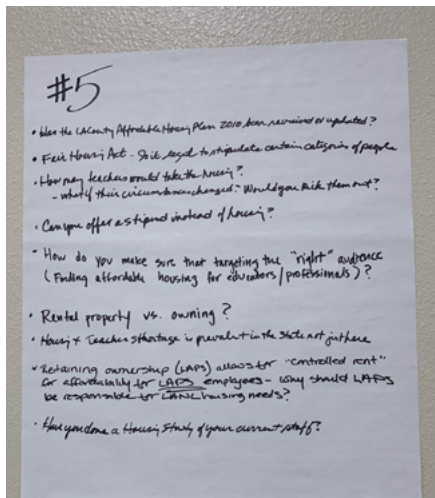 #5
• Has the LA County Affordable Housing Plan 2010 been reviewed or updated?
• Fair Housing Act - Is it legal to stipulate certain categories of people
• How many teachers would take the housing?
- what if their circumstances changed? Would you kick them out?
• Can you offer a stipend instead of housing?
• How do you make sure that targeting the "right" audience
(Finding affordable housing for educators/professionals)?
• Rental property vs. owning?
• Housing & Teacher shortage is prevalent in the State not just here
• Retaining ownership (LAPS) allows for "controlled rent"
for affordability for LAPS employees - why should LAPS
be responsible for LANL housing needs?
• Have you done a Housing Study of your current staff?